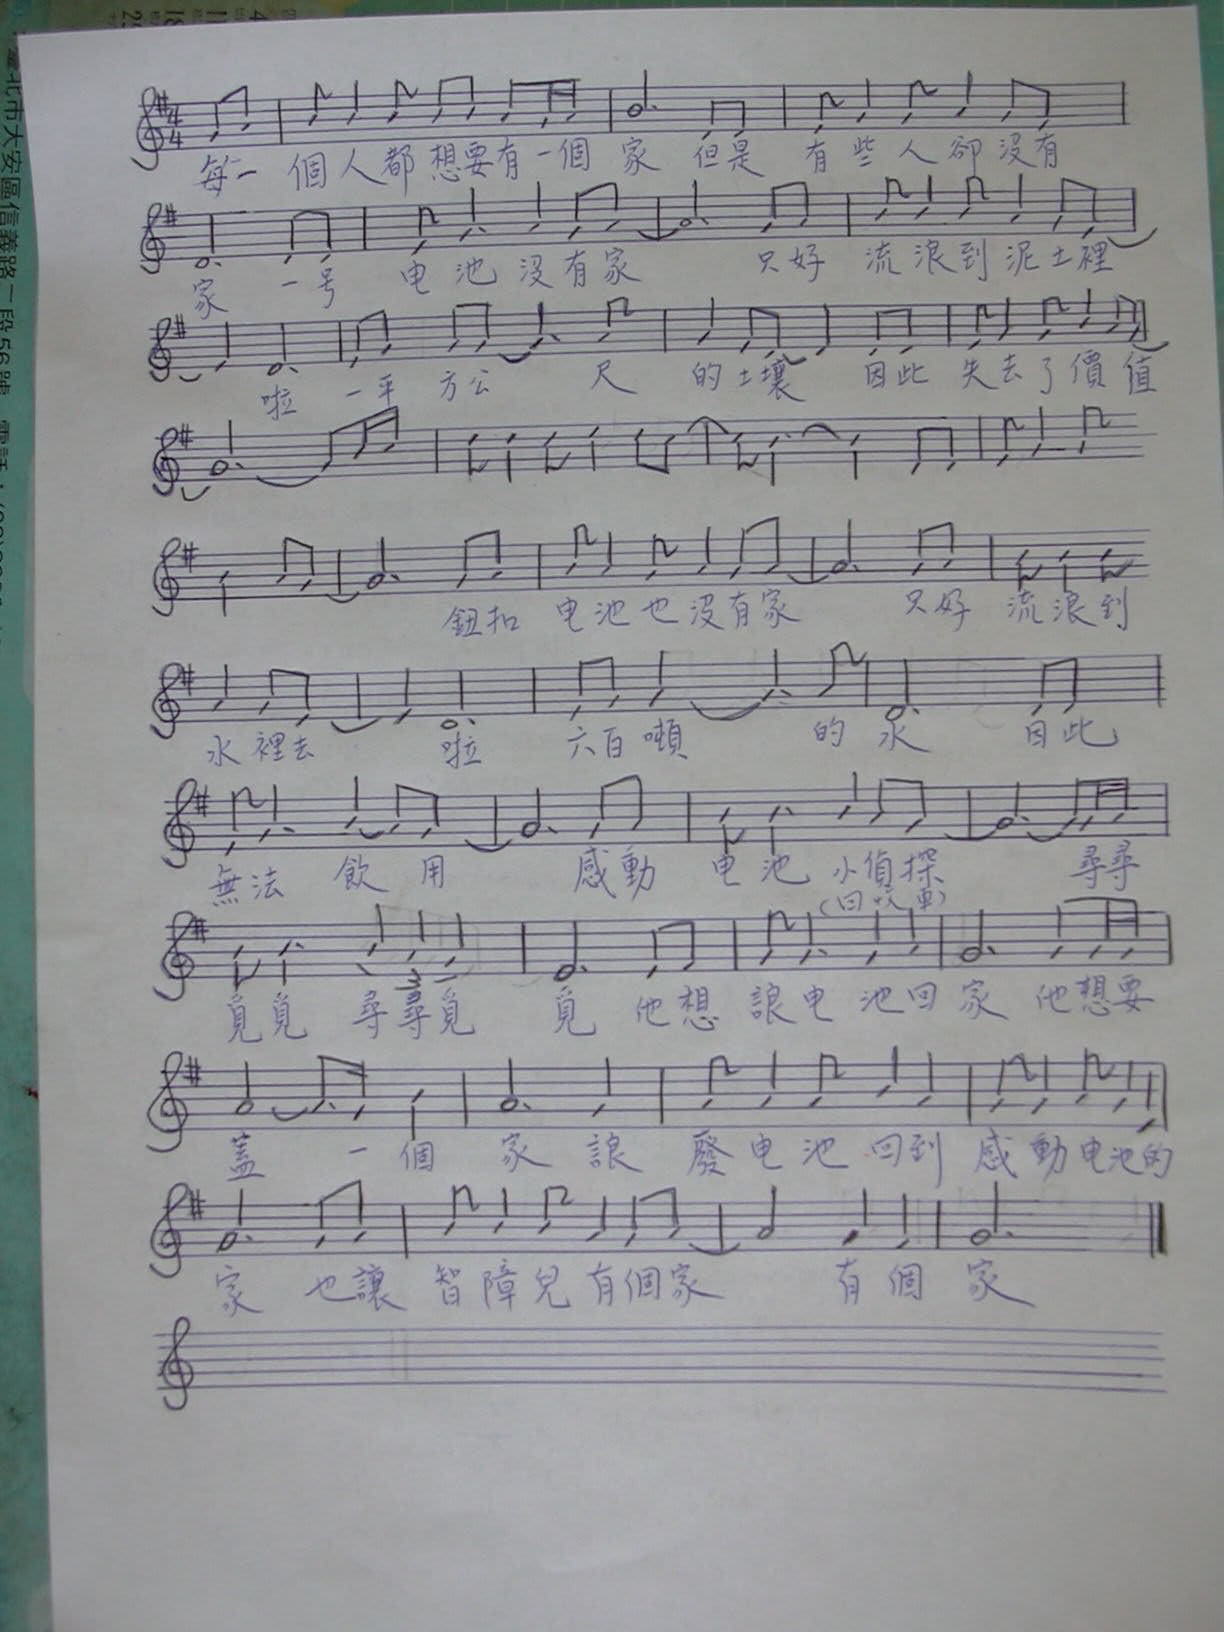 每一個人都想要有一個家 但是 有些人卻沒有
家 一号 电池沒有家 只好 流浪到泥土裡
啦 一平方公 尺 的土壤 因此 失去了價值
鈕扣 电池也沒有家 只好 流浪到
水裡去 啦 六百噸 的水 因此
無法 飲用 感動 电池小偵探 尋尋
(回收車)
覓覓 尋尋覓 覓 他想 讓电池回家 他想要
蓋 一個 家 讓 廢电池 回到 感動电池的
家 也讓 智障兒有個家 有個 家
4
4
台北市大安區信義路二段56號